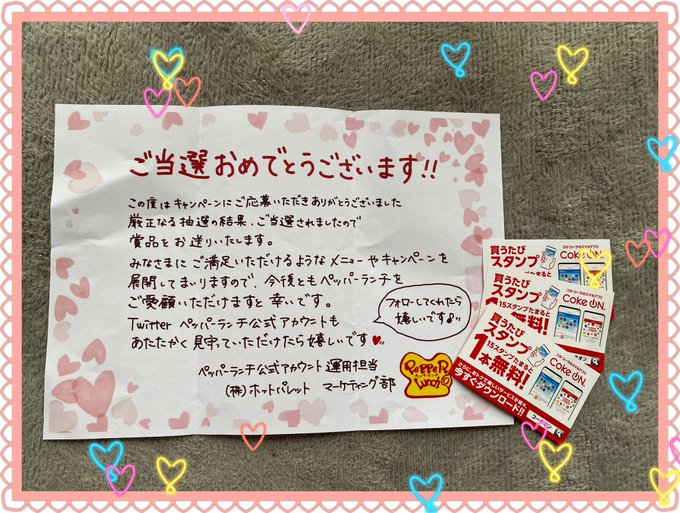 ご当選おめでとうございます!!
この度はキャンペーンにご応募いただきありがとうございました
厳正なる抽選の結果、ご当選されましたので
賞品をお送りいたします。
みなさまにご満足いただけるようなメニューやキャンペーンを
展開してまいりますので、今後ともペッパーランチを
ご愛顧いただけますと幸いです。
Twitter ペッパーランチ公式アカウントも
あたたかく見守っていただけたら嬉しいです
フォローしてくれたら
嬉しいです♪
ペッパーランチ公式アカウント運用担当
(株)ホットパレット マーケティング部
PEPPER
Lunch
コカ・コーラ公式アプリ
買うたび
スタンプ
Coke ON
買うたび
スタンプ
Coke ON
15スタンプたまると
無料!
買うたび
スタンプ
Coke ON
15スタンプたまると
1本無料!
今すぐダウンロード!!